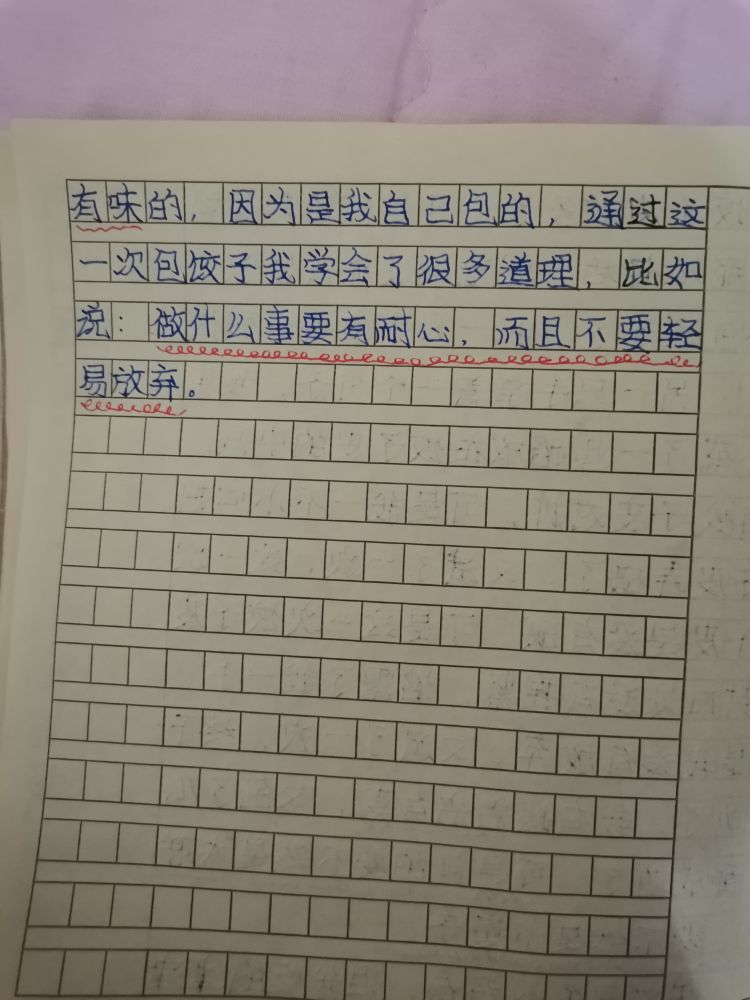 有味的，因为是我自己包的，通过这
一次包饺子我学会了很多道理，比如
说：做什么事要有耐心，而且不要轻
易放弃。